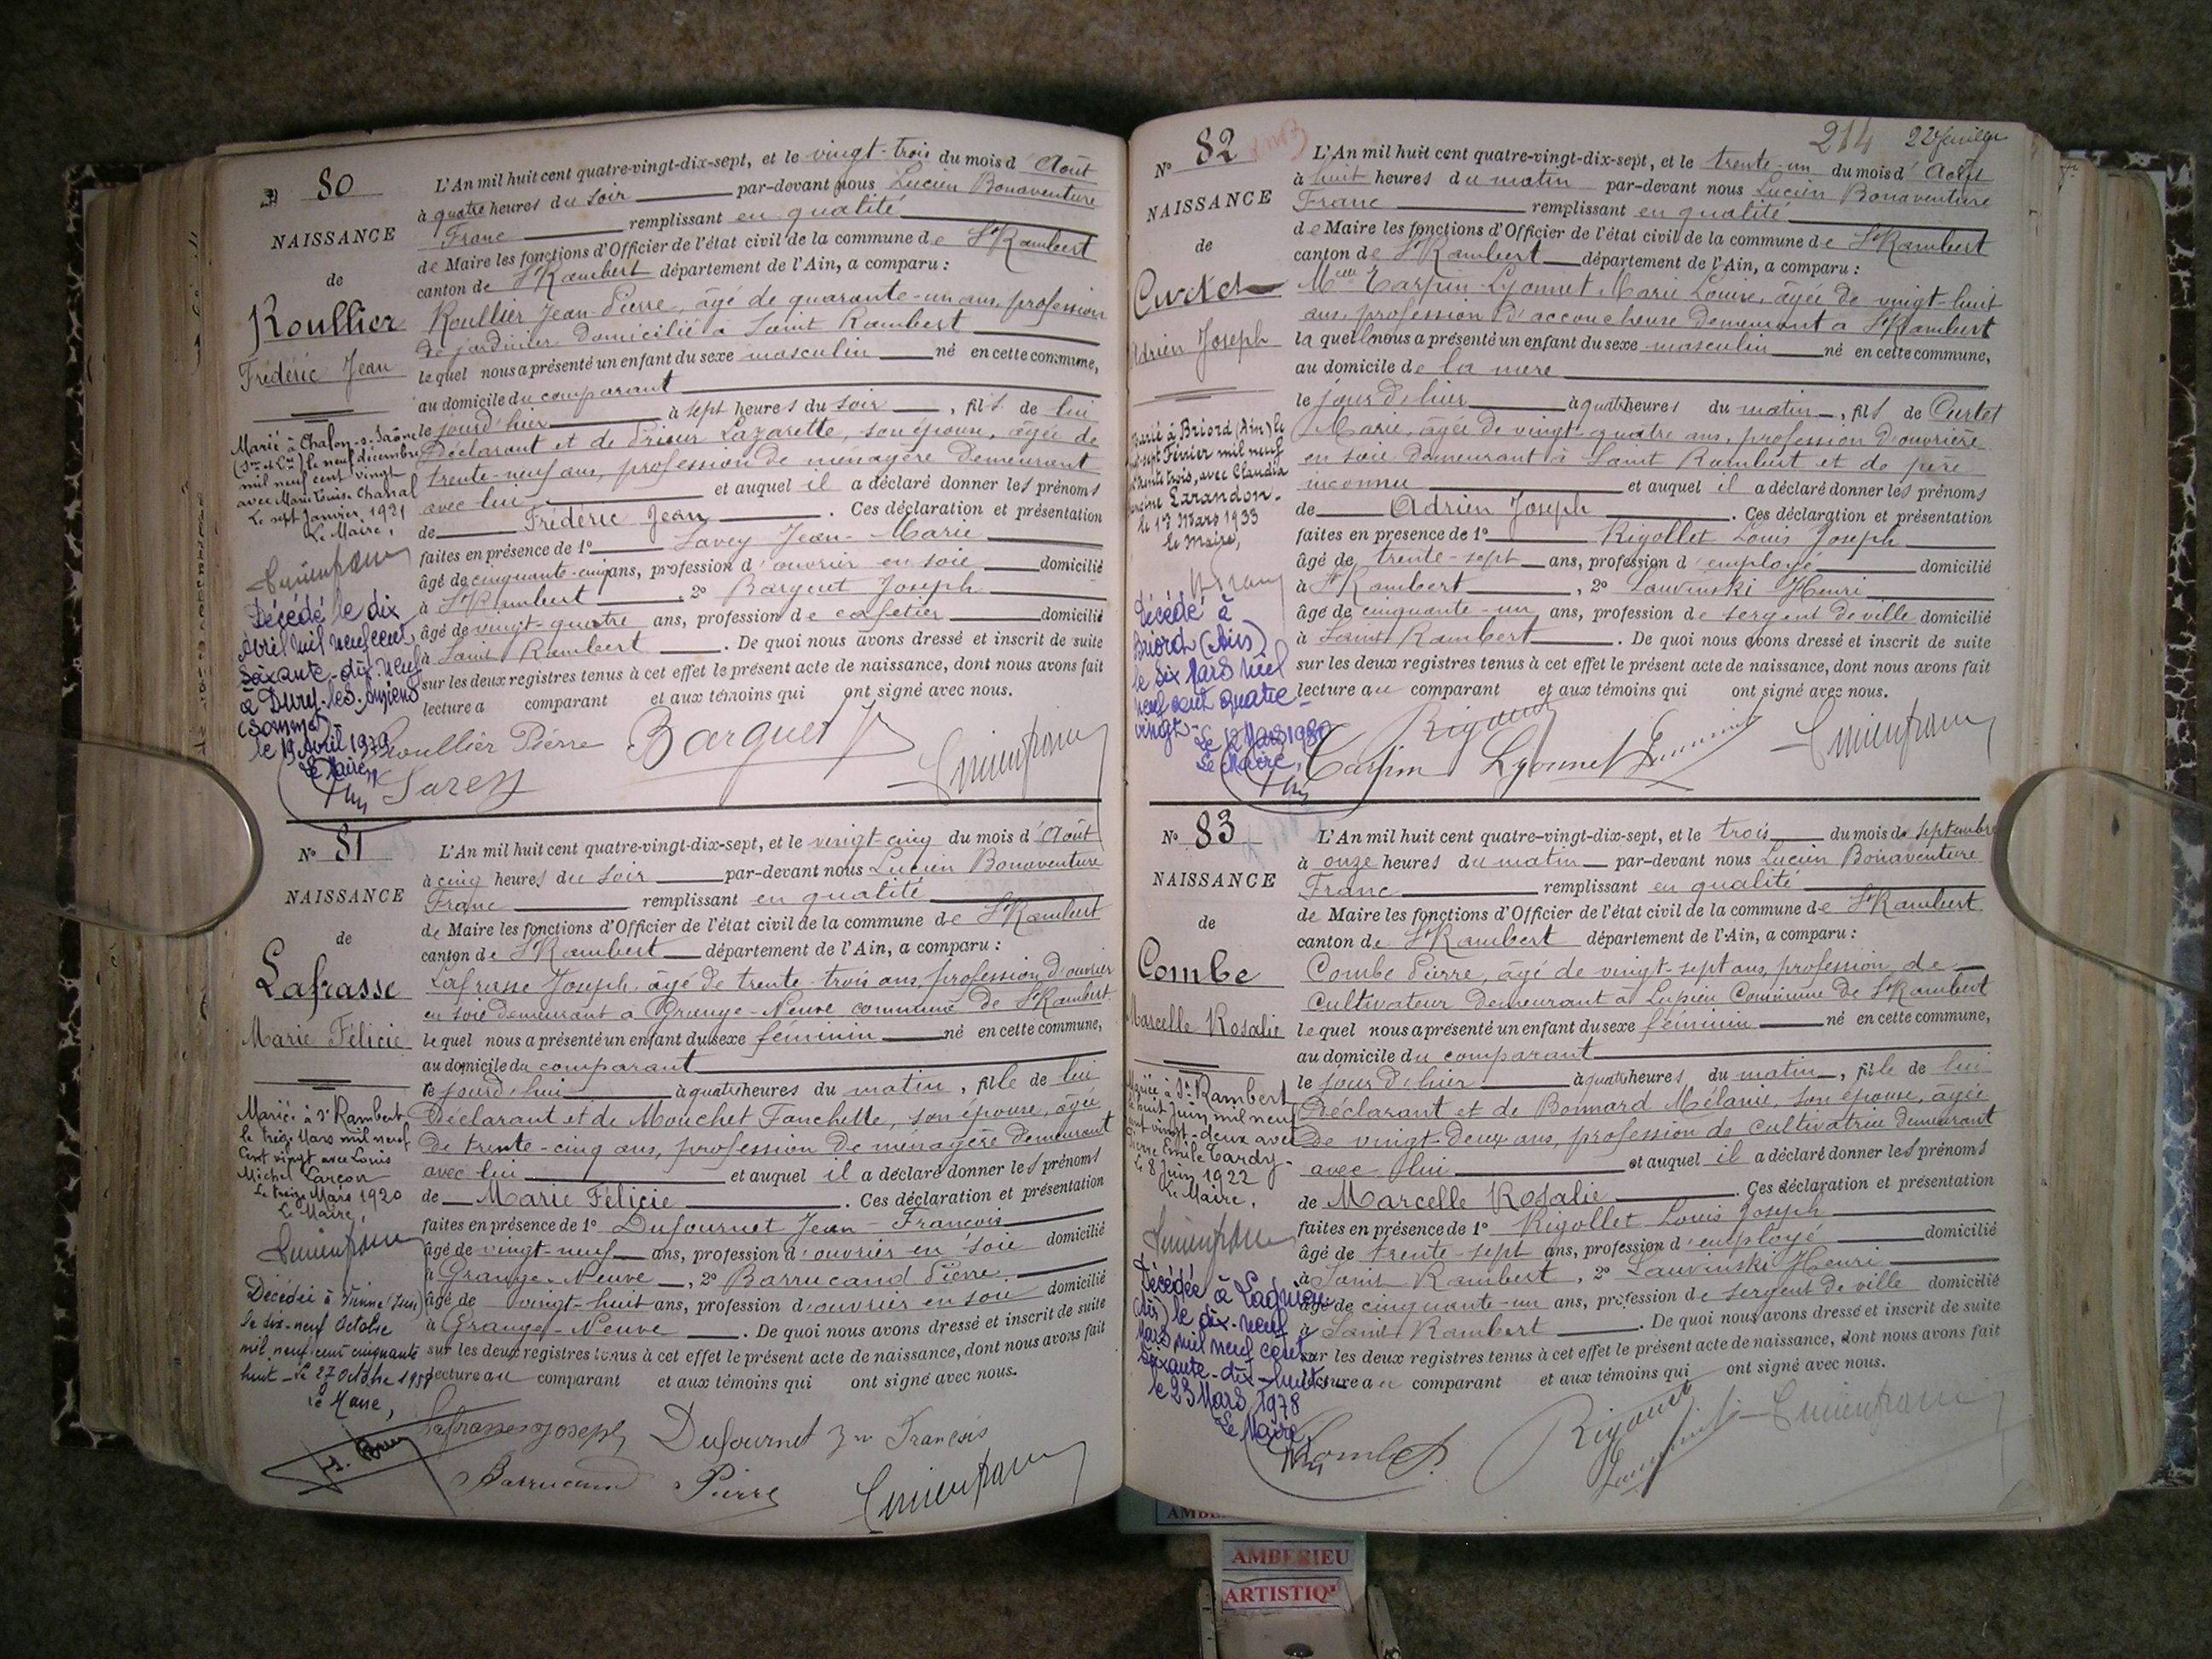 N° 80
NAISSANCE
de
Roullier
Frédéric Jean
Marié à Chalon-s-Saône
(Sne et Lre) le neuf décembre
mil neuf cent vingt
avec Marie Louise Chanal
Le sept Janvier 1921
Le Maire,
Décédé le dix
Avril mil neuf cent
soixante-dix-neuf
à Dury-les-Amiens
(Somme)
le 19 Avril 1979
Le Maire
L'An mil huit cent quatre-vingt-dix-sept, et le vingt-trois du mois d'Août
à quatre heures du soir par-devant nous Lucien Bonaventure
Franc remplissant en qualité
de Maire les fonctions d'Officier de l'état civil de la commune de St Rambert
canton de St Rambert département de l'Ain, a comparu :
Roullier Jean-Pierre, âgé de quarante-un ans, profession
de jardinier domicilié à Saint Rambert
lequel nous a présenté un enfant du sexe masculin né en cette commune,
au domicile du comparant
le jourd'hier à sept heures du soir, fils de lui
déclarant et de Prieur Lazarette, son épouse, âgée de
trente-neuf ans, profession de ménagère demeurant
avec lui et auquel il a déclaré donner les prénoms
de Frédéric Jean. Ces déclaration et présentation
faites en présence de 1° Savey Jean-Marie
âgé de cinquante-cinq ans, profession d'ouvrier en soie domicilié
à St Rambert, 2° Barquet Joseph
âgé de vingt-quatre ans, profession de cafetier domicilié
à Saint Rambert. De quoi nous avons dressé et inscrit de suite
sur les deux registres tenus à cet effet le présent acte de naissance, dont nous avons fait
lecture a comparant et aux témoins qui ont signé avec nous.
Roullier Pierre Barquet J
Savey
N° 81
NAISSANCE
de
Lafrasse
Marie Félicie
Mariée à St Rambert
le treize Mars mil neuf
cent vingt avec Louis
Michel Larçon
Le treize Mars 1920
Le Maire,
Décédée à Vienne (Isère)
le dix-neuf Octobre
mil neuf cent cinquante
huit - Le 27 Octobre 1958
Le Maire,
L'An mil huit cent quatre-vingt-dix-sept, et le vingt-cinq du mois d'Août
à cinq heures du soir par-devant nous Lucien Bonaventure
Franc remplissant en qualité
de Maire les fonctions d'Officier de l'état civil de la commune de St Rambert
canton de St Rambert département de l'Ain, a comparu :
Lafrasse Joseph âgé de trente-trois ans, profession d'ouvrier
en soie demeurant à Grange-Neuve commune de St Rambert
lequel nous a présenté un enfant du sexe féminin né en cette commune,
au domicile du comparant
le jourd'hui à quatre heures du matin, fille de lui
déclarant et de Mouchet Fanchette, son épouse, âgée
de trente-cinq ans, profession de ménagère demeurant
avec lui et auquel il a déclaré donner les prénoms
de Marie Félicie. Ces déclaration et présentation
faites en présence de 1° Dufournet Jean-François
âgé de vingt-neuf ans, profession d'ouvrier en soie domicilié
à Grange-Neuve, 2° Barrucand Pierre
âgé de vingt-huit ans, profession d'ouvrier en soie domicilié
à Grange-Neuve. De quoi nous avons dressé et inscrit de suite
sur les deux registres tenus à cet effet le présent acte de naissance, dont nous avons fait
lecture au comparant et aux témoins qui ont signé avec nous.
Lafrasse Joseph Dufournet Jn François
Barrucand Pierre
214 22 feuillet
N° 82
NAISSANCE
de
Curtet
Adrien Joseph
Marié à Briord (Ain) le
sept Février mil neuf
trente trois, avec Claudia
Larandon.
le 17 Mars 1933
le Maire,
Décédé à
Briord (Ain)
le Six Mars mil
neuf cent quatre-
vingt-
Le 12 Mars 1980
Le Maire,
L'An mil huit cent quatre-vingt-dix-sept, et le trente-un du mois d'Août
à huit heures du matin par-devant nous Lucien Bonaventure
Franc remplissant en qualité
de Maire les fonctions d'Officier de l'état civil de la commune de St Rambert
canton de St Rambert département de l'Ain, a comparu :
Mme Carpin-Lyonnet Marie Louise, âgée de vingt-huit
ans, profession d'accoucheuse demeurant à St Rambert
laquelle nous a présenté un enfant du sexe masculin né en cette commune,
au domicile de la mère
le jour d'hier à quatre heures du matin, fils de Curtet
Marie, âgée de vingt-quatre ans, profession d'ouvrière
en soie demeurant à Saint Rambert et de père
inconnu et auquel il a déclaré donner les prénoms
de Adrien Joseph. Ces déclaration et présentation
faites en presence de 1° Rigollet Louis Joseph
âgé de trente-sept ans, profession d'employé domicilié
à St Rambert, 2° Lauvinski Henri
âgé de cinquante-un ans, profession de sergent de ville domicilié
à Saint Rambert. De quoi nous avons dressé et inscrit de suite
sur les deux registres tenus à cet effet le présent acte de naissance, dont nous avons fait
lecture au comparant et aux témoins qui ont signé avec nous.
Carpin Lyonnet
N° 83
NAISSANCE
de
Combe
Marcelle Rosalie
Mariée à St Rambert
le huit Juin mil neuf
cent vingt-deux avec
Pierre Emile Tardy-
Le 8 Juin 1922
Le Maire,
Décédée à Lagnieu
(Ain) le dix-neuf
Mars mil neuf cent
soixante-dix-huit-
le 23 Mars 1978
Le Maire,
L'An mil huit cent quatre-vingt-dix-sept, et le trois du mois de septembre
à onze heures du matin par-devant nous Lucien Bonaventure
Franc remplissant en qualité
de Maire les fonctions d'Officier de l'état civil de la commune de St Rambert
canton de St Rambert département de l'Ain, a comparu :
Combe Pierre, âgé de vingt-sept ans, profession de
cultivateur demeurant à Lupieu Commune de St Rambert
lequel nous a présenté un enfant du sexe féminin né en cette commune,
au domicile du comparant
le jour d'hier à quatre heures du matin, fille de lui
déclarant et de Bonnard Mélanie, son épouse, âgée
de vingt-deux ans, profession de cultivatrice demeurant
avec lui et auquel il a déclaré donner les prénoms
de Marcelle Rosalie. Ces déclaration et présentation
faites en présence de 1° Rigollet Louis Joseph
âgé de trente-sept ans, profession d'employé domicilié
à Saint Rambert, 2° Lauvinski Henri
âgé de cinquante-un ans, profession de sergent de ville domicilié
à Saint Rambert. De quoi nous avons dressé et inscrit de suite
sur les deux registres tenus à cet effet le présent acte de naissance, dont nous avons fait
lecture au comparant et aux témoins qui ont signé avec nous.
Combe P.
AMBERIEU
ARTISTIQ